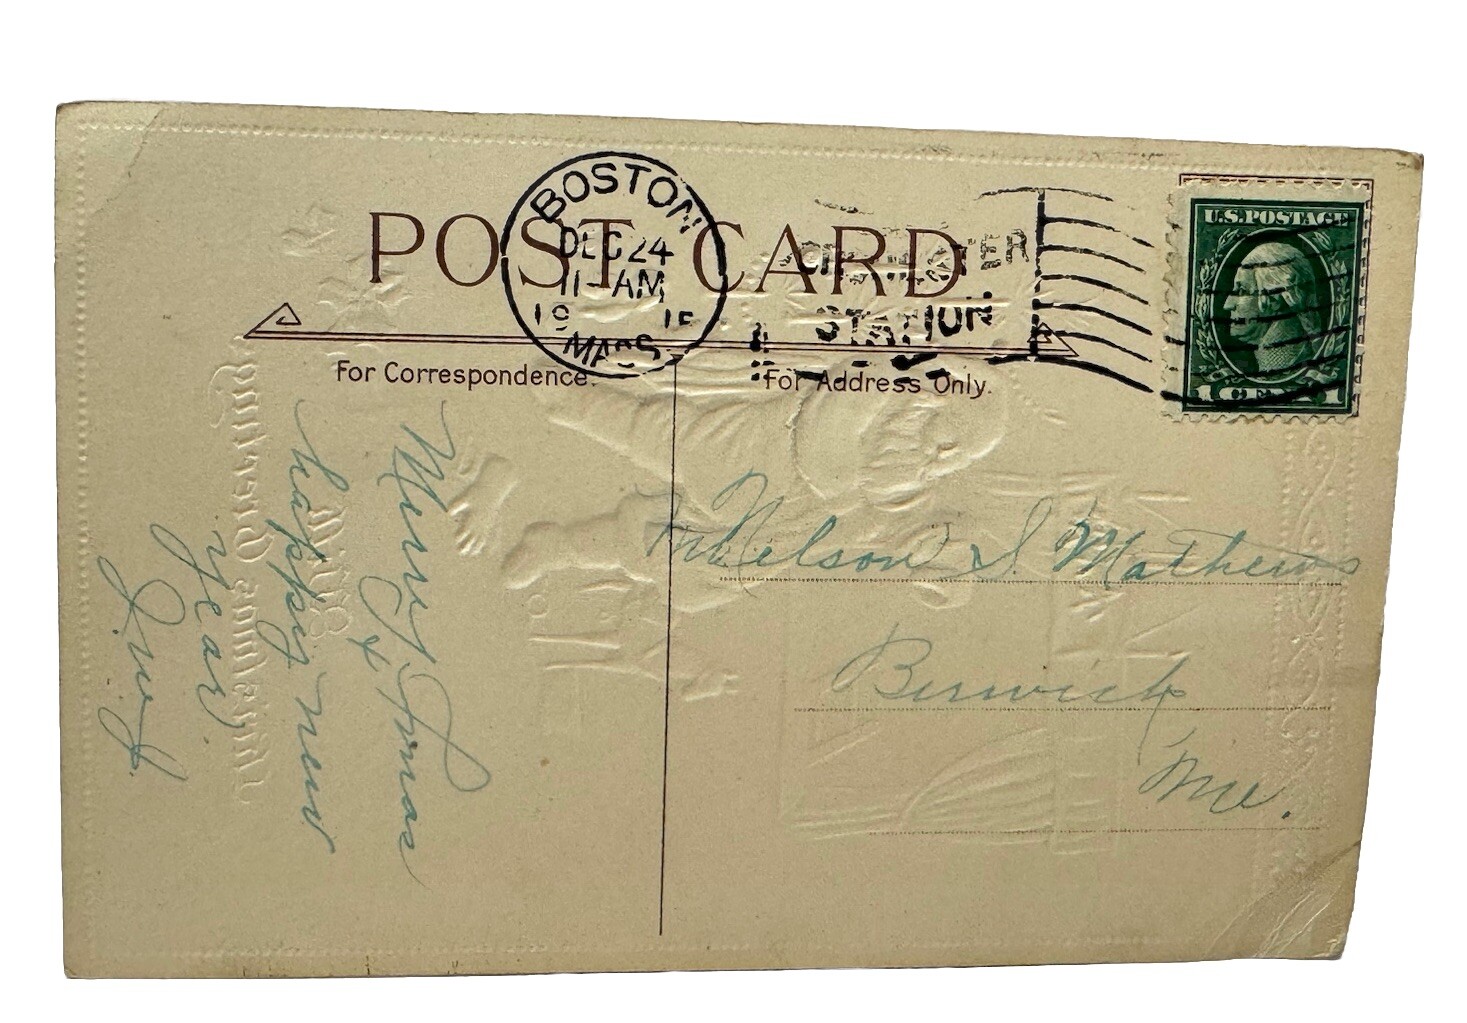 POST CARD
BOSTON
DEC 24
11-AM
19 15
MASS
STATION
U.S. POSTAGE
1 CENT 1
For Correspondence.
For Address Only.
Merry Xmas
&
happy new
year
Mr Nelson S Mathews
Berwick
Me.